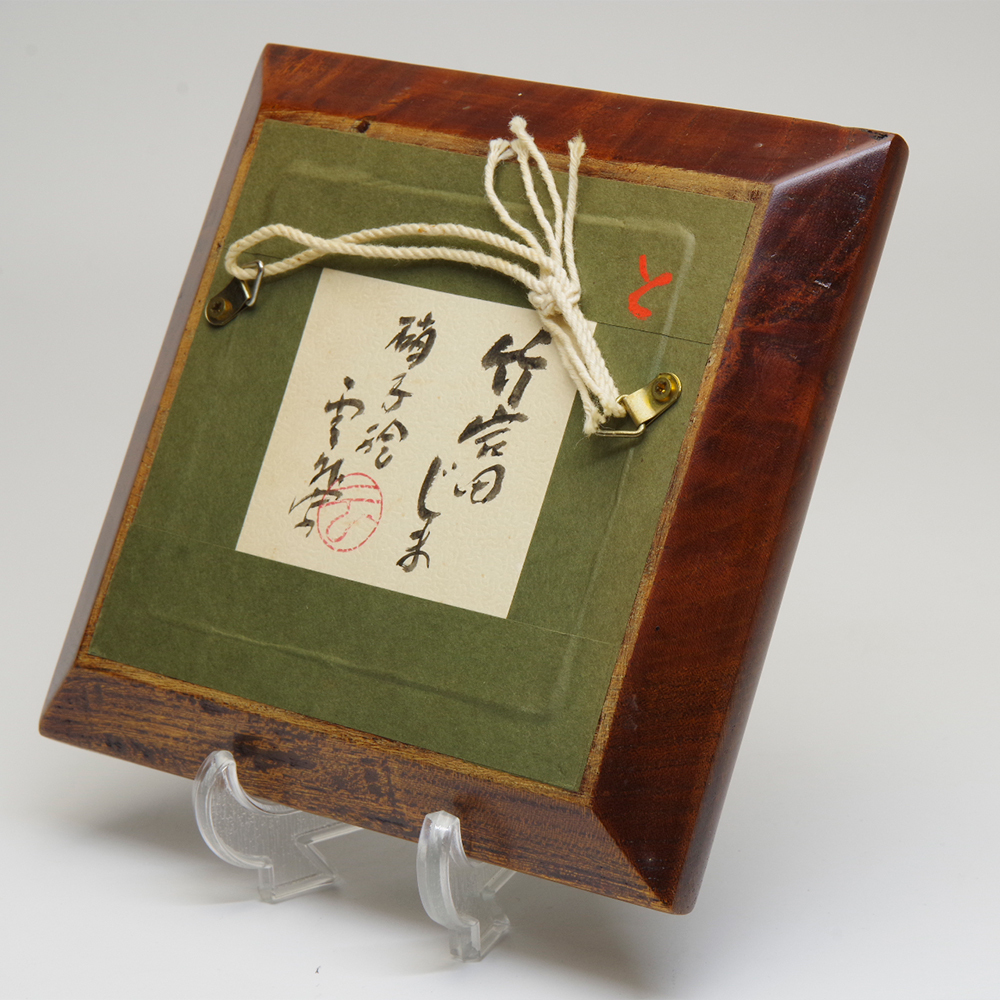 と
竹富じま
硝子絵